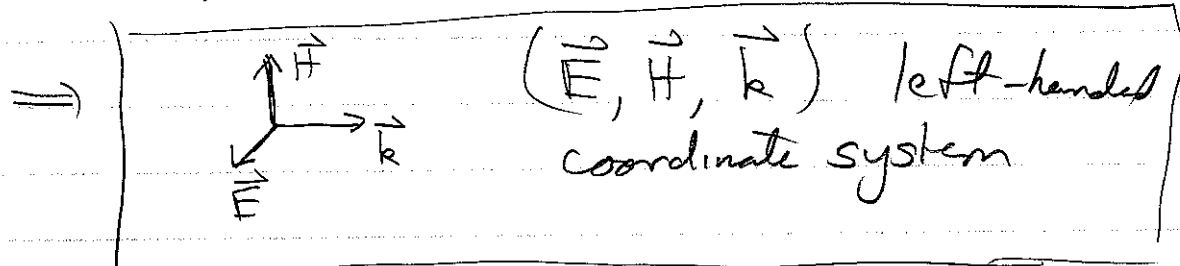 ⟹ H⃗ (E⃗, H⃗, k⃗) left-handed
k⃗ coordinate system
E⃗